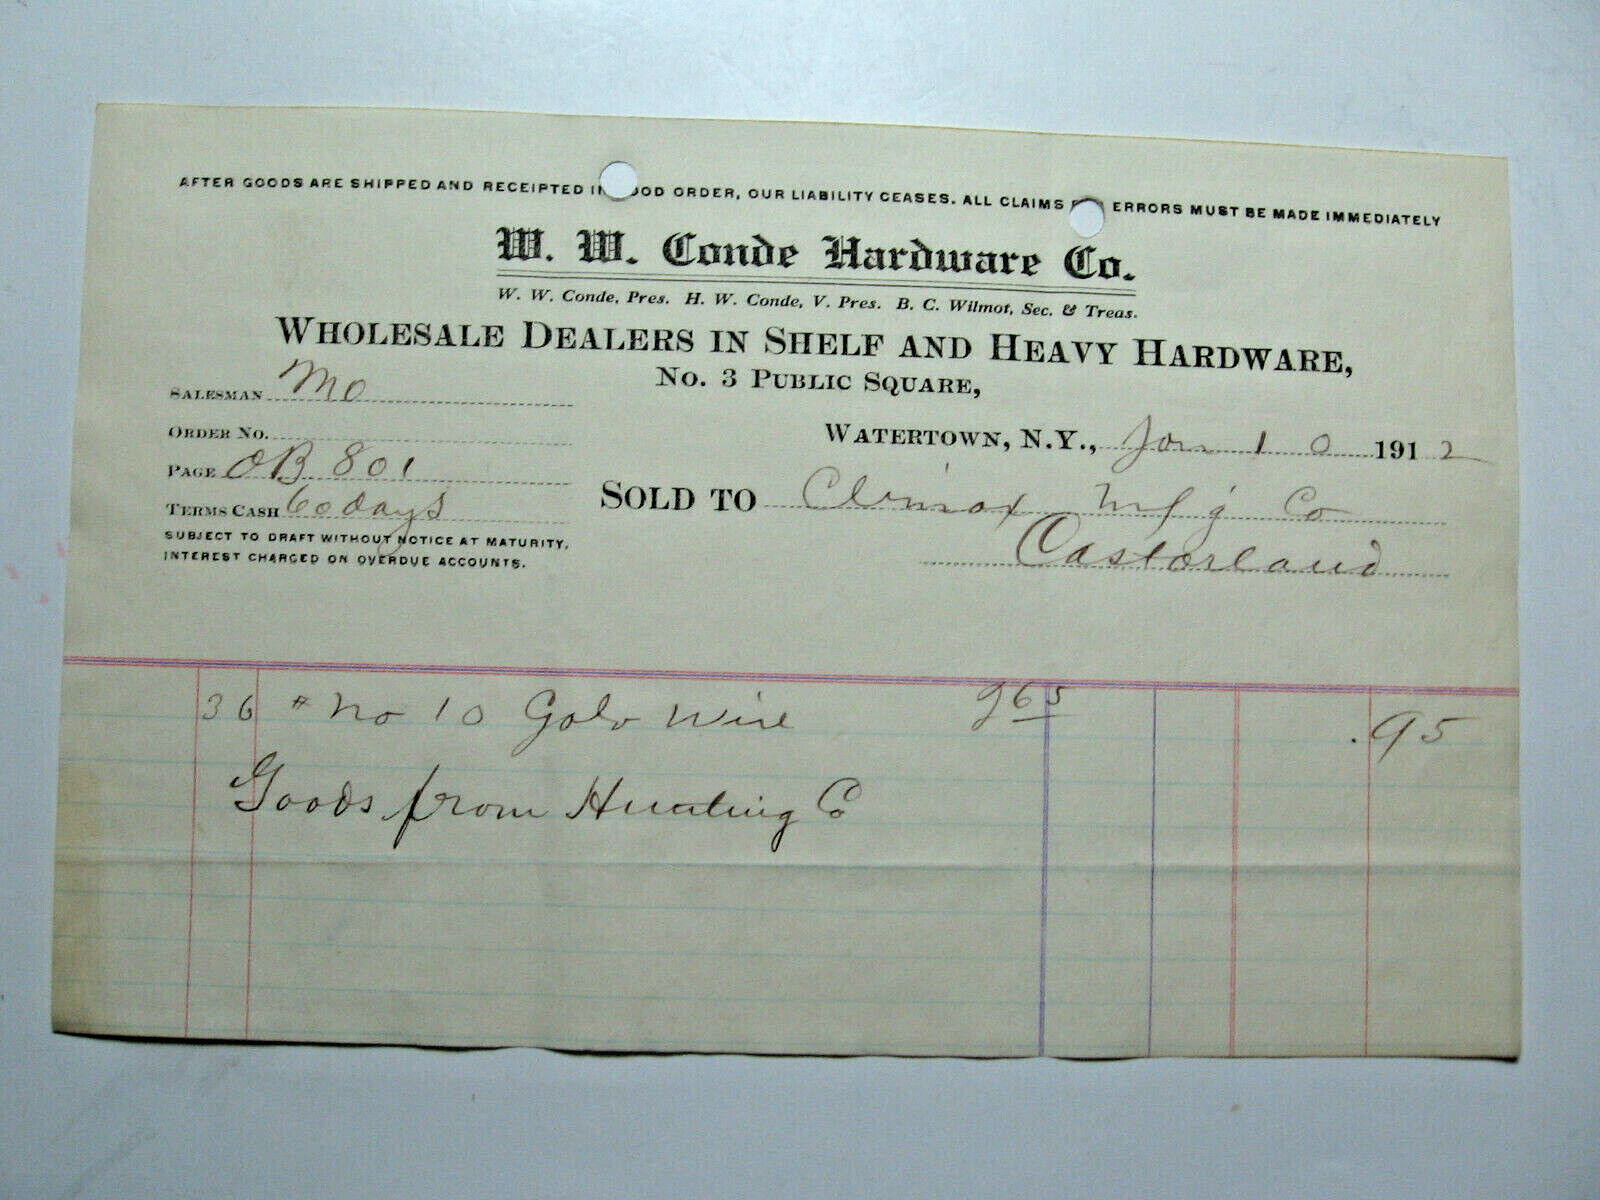 AFTER GOODS ARE SHIPPED AND RECEIPTED IN OOD ORDER, OUR LIABILITY CEASES. ALL CLAIMS ERRORS MUST BE MADE IMMEDIATELY
W. W. Conde Hardware Co.
W. W. Conde, Pres. H. W. Conde, V. Pres. B. C. Wilmot, Sec. & Treas.
WHOLESALE DEALERS IN SHELF AND HEAVY HARDWARE,
No. 3 PUBLIC SQUARE,
SALESMAN MO
ORDER NO.
WATERTOWN, N.Y., Jan 10 1912
PAGE OB 801
SOLD TO Climax Mf'g Co
TERMS CASH 60 days
Castorland
SUBJECT TO DRAFT WITHOUT NOTICE AT MATURITY,
INTEREST CHARGED ON OVERDUE ACCOUNTS.
36 # No 10 Galv Wire 265 .95
Goods from Co